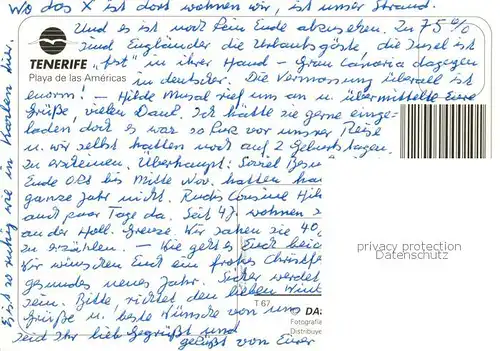 Wo das X ist dort wohnen wir, ist unser Strand.
Und es ist noch kein Ende abzusehen. Zu 75 %
sind Engländer die Urlaubsgäste, die Insel ist
TENERIFE "fest" in ihrer Hand – Gran Canaria dagegen
Playa de las Américas
in deutscher. Die Vermassung überall ist
enorm! – Hilde Musal rief uns an u. übermittelte Eure
Grüße, vielen Dank. Ich hätte sie gerne einge-
laden doch es war so kurz vor unsrer Reise
u. wir selbst hatten noch auf 2 Geburtstagen
zu erscheinen. Überhaupt: Soviel Besu
Ende Okt. bis Mitte Nov. hatten
ganze Jahr nicht. Rudis Cousine
auch paar Tage da. Seit 47 wohnen
an der Holl. Grenze. Wir sahen sie 40
zu erzählen. – Wie geht es Euch
Wir wünschen Euch ein frohes Christfe
gesundes neues Jahr. Sicher werdet
sein. Bitte, richtet den lieben
Grüße u. beste Wünsche von uns
Seid Ihr lieb gegrüßt und
geküßt von Eurer
Es ist so ruhig wie in Karten
privacy protection
Datenschutz
T 67
© DA
Fotografie
Distribuye